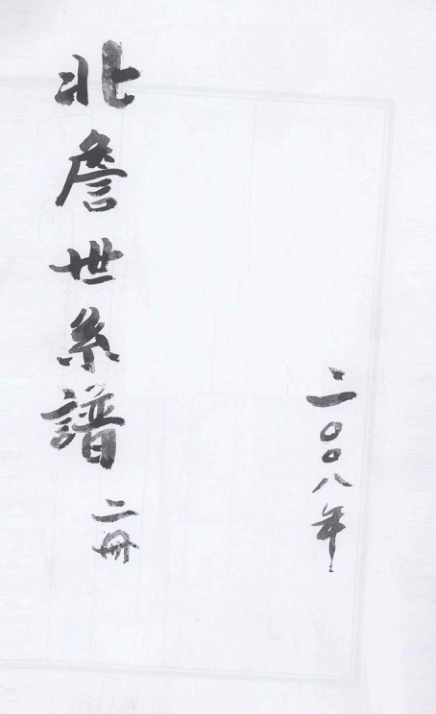 二〇〇八年
北詹世系譜 二冊